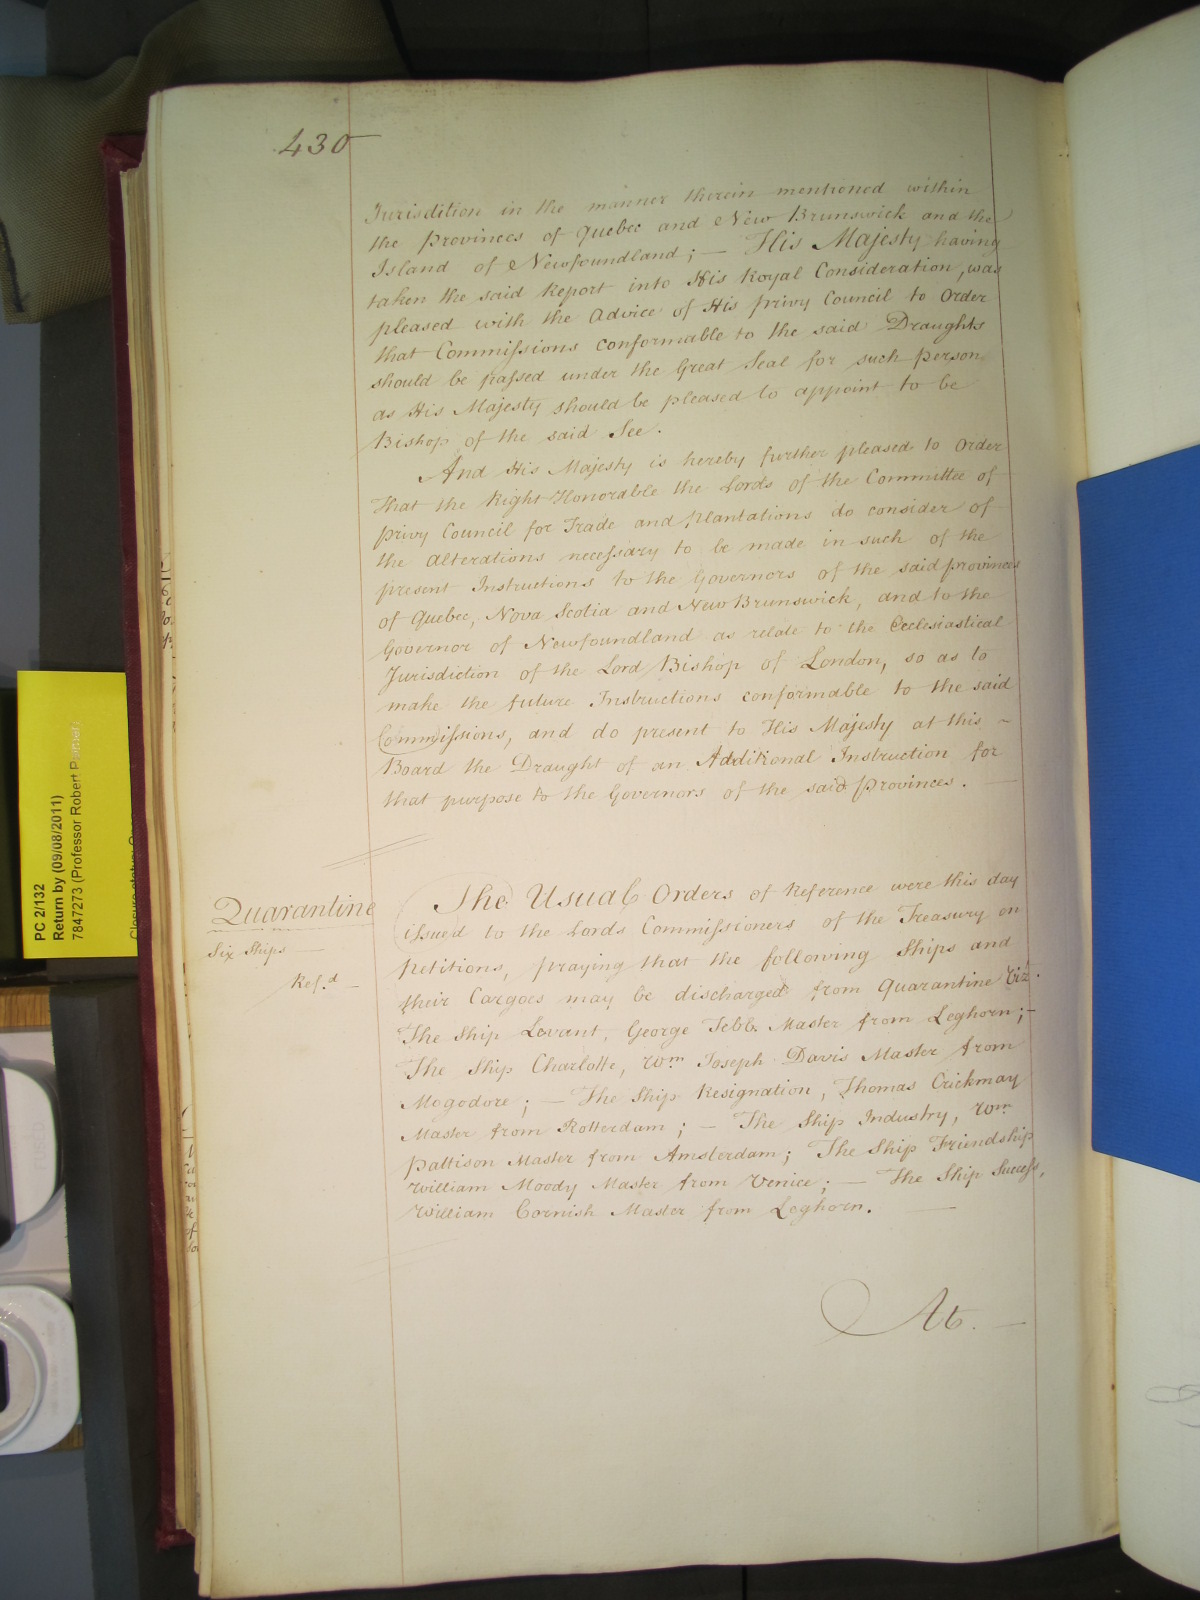 430
Jurisdition in the manner therein mentioned within
the Provinces of Quebec and New Brunswick and the
Island of Newfoundland; — His Majesty having
taken the said Report into His Royal Consideration, was
pleased with the Advice of His Privy Council to Order
that Commissions conformable to the said Draughts
should be passed under the Great Seal for such Person
as His Majesty should be pleased to appoint to be
Bishop of the said See.
And His Majesty is hereby further pleased to Order
that the Right Honorable the Lords of the Committee of
Privy Council for Trade and Plantations do consider of
the alterations necessary to be made in such of the
present Instructions to the Governors of the said Provinces
of Quebec, Nova Scotia and New Brunswick, and to the
Governor of Newfoundland as relate to the Ecclesiastical
Jurisdiction of the Lord Bishop of London, so as to
make the future Instructions conformable to the said
Commissions, and do present to His Majesty at this ~
Board the Draught of an Additional Instruction for
that purpose to the Governors of the said Provinces. —
Quarantine
Six Ships —
Ref.d —
The Usual Orders of Reference were this day
issued to the Lords Commissioners of the Treasury on
Petitions, praying that the following Ships and
their Cargoes may be discharged from Quarantine Viz.
The Ship Levant, George Tebb Master from Leghorn; —
The Ship Charlotte, Wm Joseph Davis Master from
Mogodore; — The Ship Resignation, Thomas Crickmay
Master from Rotterdam; — The Ship Industry, Wm
Pattison Master from Amsterdam; The Ship Friendship
William Moody Master from Venice; — The Ship Success,
William Cornish Master from Leghorn. —
At. —
PC 2/132
Return by (09/08/2011)
7847273 (Professor Robert Palmer)